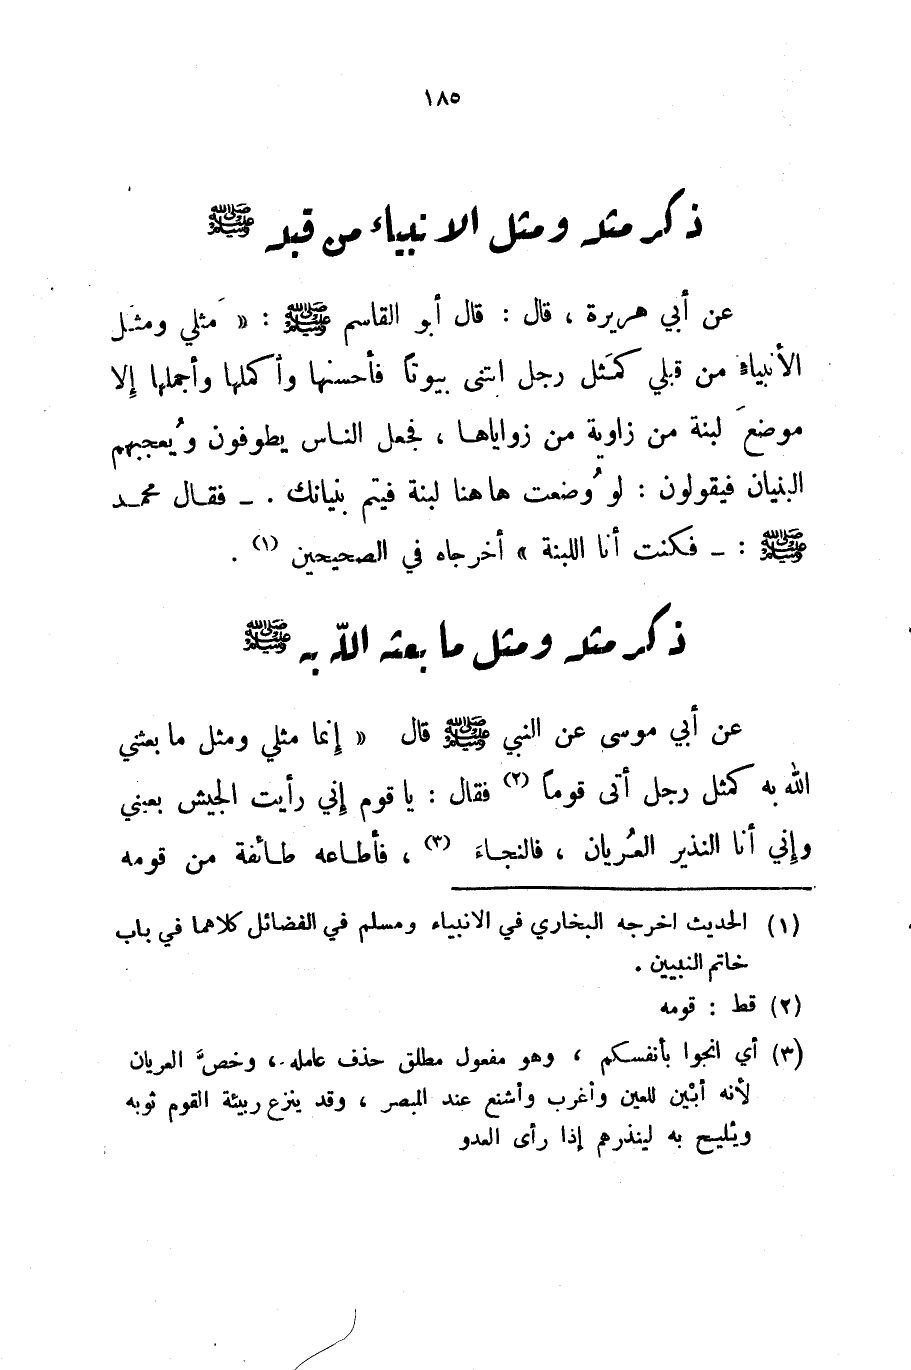 ١٨٥
ذكر مثله ومثل الانبياء من قبله ﷺ
عن أبي هريرة ، قال : قال أبو القاسم ﷺ : « مَثلي ومثَل
الأنبياءِ من قبلي كمَثل رجل ابتنى بيوتاً فأحسنها وأكملها وأجملها إلا
موضعَ لبنة من زاوية من زواياها ، فجعل الناس يطوفون ويُعجبهم
البنيان فيقولون : لو وُضعت هاهنا لبنة فيتم بنيانك . ـ فقال محمد
ﷺ : ـ فكنت أنا اللبنة » أخرجاه في الصحيحين (١) .
ذكر مثله ومثل ما بعثه اللّه به ﷺ
عن أبي موسى عن النبي ﷺ قال « إنما مثلي ومثل ما بعثني
الله به كمثل رجل أتى قوماً (٢) فقال : يا قوم إني رأيت الجيش بعيني
وإني أنا النذير العُريان ، فالنجاءَ (٣) ، فأطاعه طائفة من قومه
(١) الحديث اخرجه البخاري في الانبياء ومسلم في الفضائل كلاهما في باب
خاتم النبيين .
(٢) قط : قومه
(٣) أي انجوا بأنفسكم ، وهو مفعول مطلق حذف عامله ، وخصَّ العريان
لأنه أبْين للعين وأغرب وأشنع عند المبصر ، وقد ينزع ربيئة القوم ثوبه
ويُليح به لينذرهم إذا رأى العدو